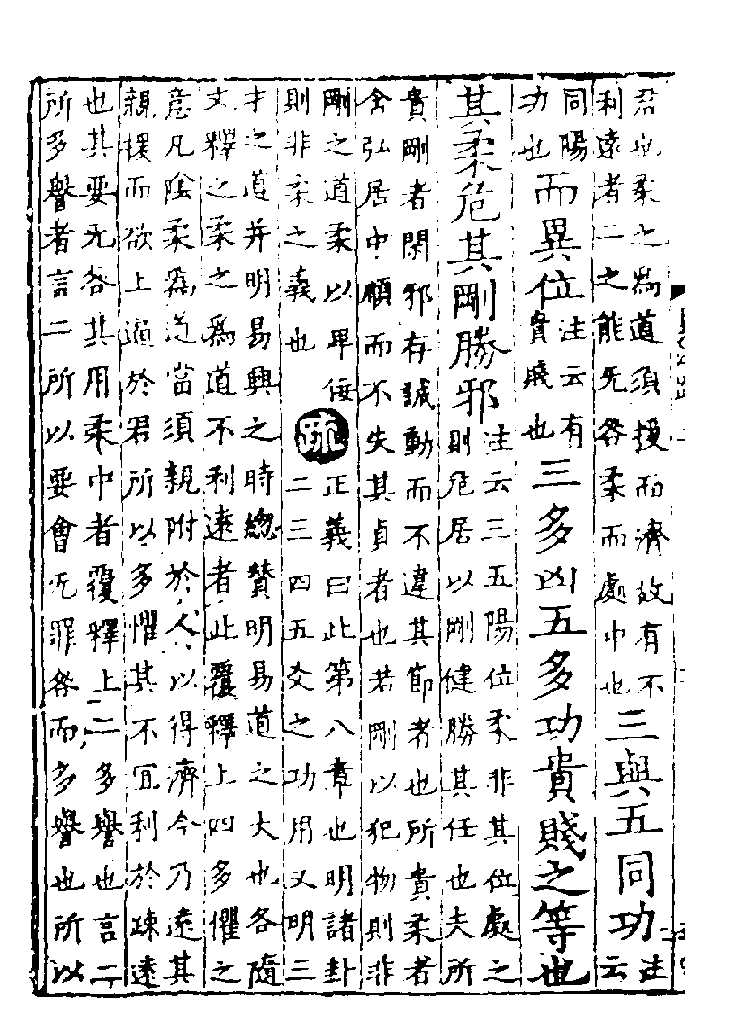 君也柔之為道須援而濟故有不
利遠者二之能无咎柔而處中也
三與五同功
注云
同陽
功也
而異位
注云有
貴賤也
三多凶五多功貴賤之等也
其柔危其剛勝邪
注云三五陽位柔非其位處之
則危居以剛健勝其任也夫所
貴剛者閑邪存誠動而不違其節者也所貴柔者
含弘居中順而不失其貞者也若剛以犯物則非
剛之道柔以卑佞
則非柔之義也
疏
正義曰此第八章也明諸卦
二三四五爻之功用又明三
才之道并明易興之時總贊明易道之大也各隨
文釋之柔之為道不利遠者此覆釋上四多懼之
意凡陰柔為道當須親附於人以得濟今乃遠其
親援而欲上逼於君所以多懼其不宜利於疎遠
也其要无咎其用柔中者覆釋上二多譽也言二
所多譽者言二所以要會无罪咎而多譽也所以